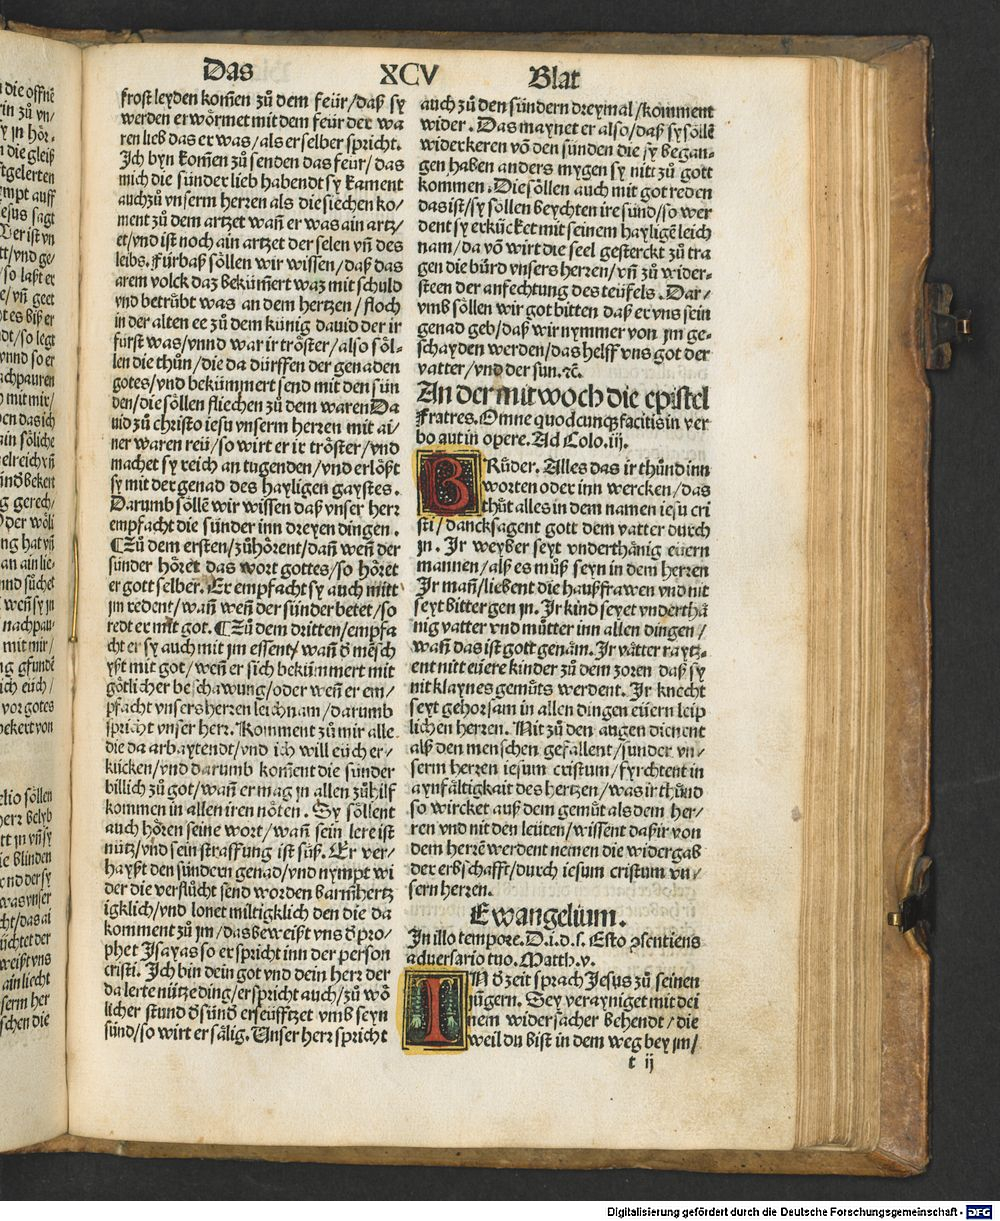 Das XCV Blat
frost leyden kom̄en zů dem feür/daß sy
werden erwörmet mit dem feür der wa
ren lieb das er was/als er selber spricht.
Ich byn kom̄en zů senden das feür/das
mich die sünder lieb habendt sy kament
auch zů vnserm herren als die siechen ko/
ment zů dem artzet wañ er was ain artz/
et/vnd ist noch ain artzet der selen vñ des
leibs. Fürbaß söllen wir wissen/daß das
arem volck daz bekům̄ert waz mit schuld
vnd betrůbt was an dem hertzen/floch
in der alten ee zů dem künig dauid der ir
fürst was/vnnd war ir tröster/also söl-
len die thůn/die da dürffen der genaden
gotes/vnd bekümmert send mit den sün
den/die söllen fliechen zů dem waren Da
uid zů christo iesu vnserm herren mit ai/
ner waren reü/so wirt er ir tröster/vnd
machet sy reich an tugenden/vnd erlößt
sy mit der genad des hayligen gaystes.
Darumb söllē wir wissen daß vnser herr
empfacht die sünder inn dreyen dingen.
¶Zů dem ersten/zůhörent/dañ weñ der
sünder höret das wort gottes/so höret
er gott selber. Er empfacht sy auch mitt
jm redent/wañ weñ der sünder betet/so
redt er mit got. ¶Zů dem dritten/empfa
cht er sy auch mit jm essent/wañ ð mēsch
yßt mit got/weñ er sich bekümmert mit
götlicher beschawung/oder weñ er em/
pfacht vnsers herren leichnam/darumb
spricht vnser herr. Komment zů mir alle
die da arbaytendt/vnd ich will eüch er/
kücken/vnd darumb kom̄ent die sünder
billich zů got/wañ er mag jn allen zů hilf
kommen in allen iren nöten. Sy söllent
auch hören seine wort/wañ sein lere ist
nütz/vnd sein straffung ist süß. Er ver-
hayßt den sündern genad/vnd nympt wi
der die verflůcht send worden barm̄hertz
igklich/vnd lonet miltigklich den die da
komment zů jm/das beweißt vns ð pro/
phet Isayas so er spricht inn der person
cristi. Ich bin dein got vnd dein herr der
da lerte nütze ding/er spricht auch/zů wö
licher stund ð sünd erseüfftzet vmb seyn
sünd/so wirt er sälig. Unser herr spricht
auch zů den sündern dreymal/komment
wider. Das maynet er also/daß sy söllē
widerkeren vō den sünden die sy began-
gen haben anders mygen sy nitt zů gott
kommen. Die söllen auch mit got reden
das ist/sy söllen beychten ire sünd/so wer
dent sy erkücket mit seinem hayligē leich
nam/da vō wirt die seel gesterckt zů tra
gen die bürd vnsers herren/vñ zů wider-
steen der anfechtung des teüfels. Dar/
vmb söllen wir got bitten daß er vns sein
genad geb/daß wir nymmer von jm ge-
schayden werden/das helff vns got der
vatter/vnd der sun.⁊c.
An der mitwoch die epistel
Fratres. Omne quodcunqꝫ facitis in ver
bo aut in opere. Ad Colo. iij.
BRůder. Alles das ir thůnd inn
worten oder inn wercken/das
thůt alles in dem namen iesu cri
sti/dancksagent gott dem vatter durch
jn. Ir weyber seyt vnderthänig eüern
mannen/alß es můß seyn in dem herren
Ir mañ/liebent die haußfrawen vnd nit
seyt bitter gen jn. Ir kind seyet vnderthä
nig vatter vnd můtter inn allen dingen/
wañ das ist gott genäm. Ir vätter raytz-
ent nitt eüere kinder zů dem zoren daß sy
nit klaynes gemůts werdent. Ir knecht
seyt gehorsam in allen dingen eüern leip
lichen herren. Nit zů den augen dienent
alß den menschen gefallent/sunder vn/
serm herren iesum cristum/fyrchtent in
aynfältigkait des hertzen/was ir thůnd
so wircket auß dem gemůt als dem her/
ren vnd nit den leüten/wissent daß ir von
dem herrē werdent nemen die widergab
der erbschafft/durch iesum cristum vn/
sern herren.
Ewangelium.
In illo tempore. D.i.d.s. Esto ↄsentiens
aduersario tuo. Matth.v.
IN ð zeit sprach Jesus zů seinen
jüngern. Sey verayniget mit dei
nem widersächer behendt/die
weil du bist in dem weg bey jm/
t ij
Digitalisierung gefördert durch die Deutsche Forschungsgemeinschaft - DFG